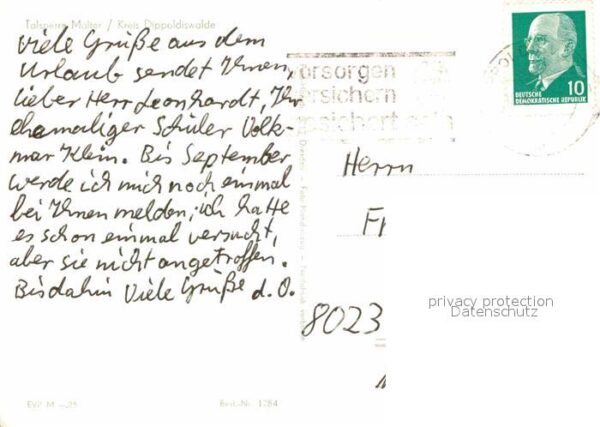 Talsperre Malter / Kreis Dippoldiswalde
Viele Grüße aus dem
Urlaub sendet Ihnen,
lieber Herr Leonhardt, Ihr
ehemaliger Schüler Volk-
mar Klein. Bis September
werde ich mich noch einmal
bei Ihnen melden; ich hatte
es schon einmal versucht,
aber sie nicht angetroffen.
Bis dahin Viele Grüße d. O.
EVP M -,25
Best.-Nr. 1284
vorsorgen
versichern
gesichert sein
10
DEUTSCHE
DEMOKRATISCHE REPUBLIK
Herrn
8023
privacy protection
Datenschutz